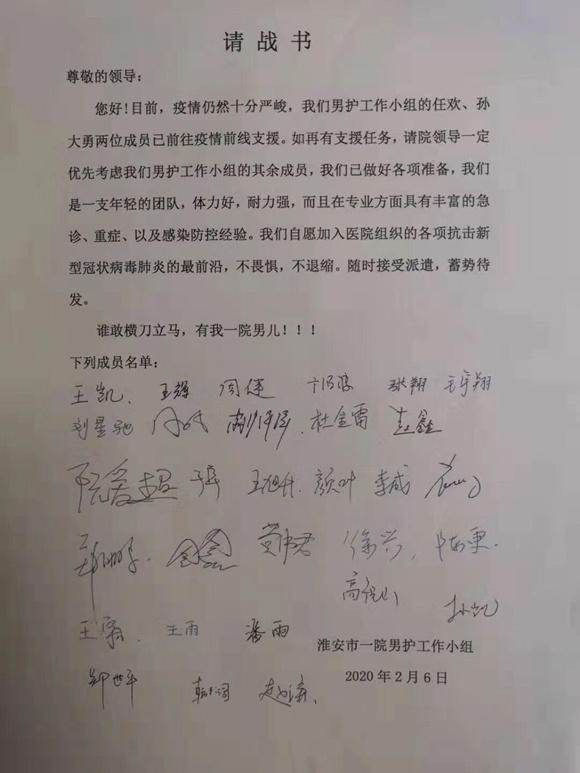 请战书
尊敬的领导:
您好!目前，疫情仍然十分严峻，我们男护工作小组的任欢、孙
大勇两位成员已前往疫情前线支援。如再有支援任务，请院领导一定
优先考虑我们男护工作小组的其余成员，我们已做好各项准备，我们
是一支年轻的团队，体力好，耐力强，而且在专业方面具有丰富的急
诊、重症、以及感染防控经验。我们自愿加入医院组织的各项抗击新
型冠状病毒肺炎的最前沿，不畏惧，不退缩。随时接受派遣，蓄势待
发。
谁敢横刀立马，有我一院男儿！！！
下列成员名单:
王凯、 王辉 周健 张翔
刘星驰 杜金雷 赵鑫
颜叶 李威
徐兴，
孙凯
王雨 潘雨
淮安市一院男护工作小组
郑世平 2020 年 2 月 6 日